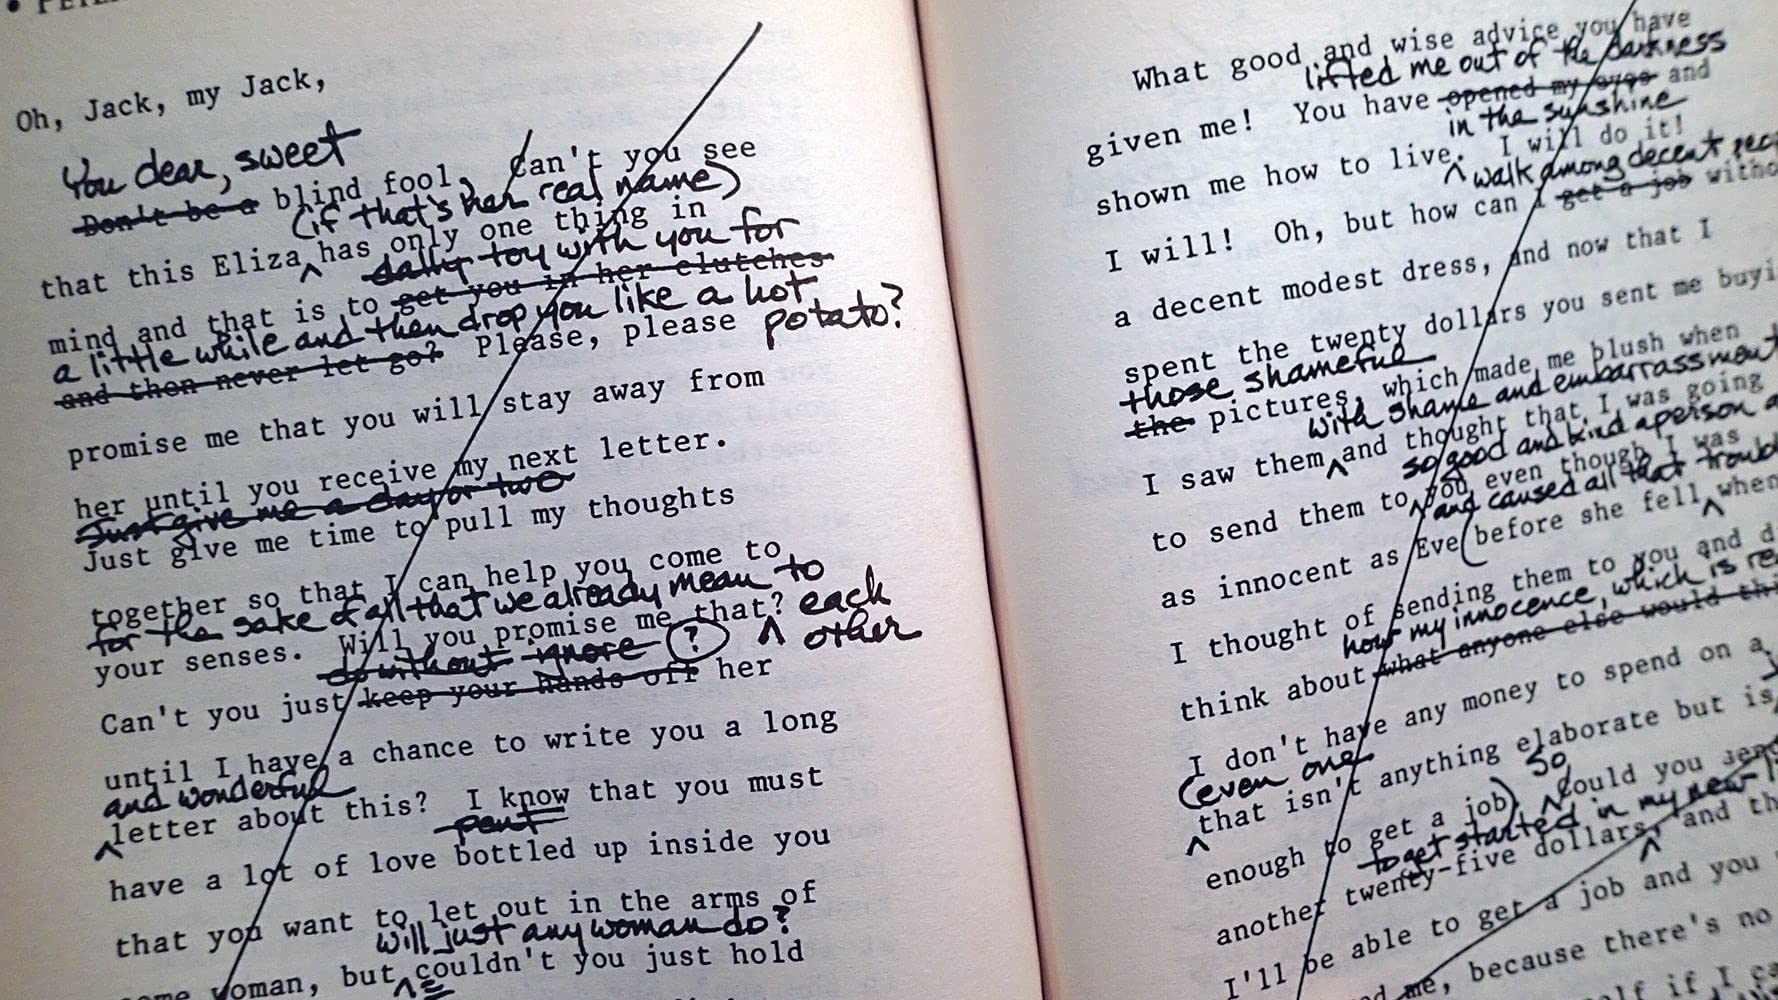 Oh, Jack, my Jack,
You dear, sweet
Don't be a blind fool, Can't you see
(if that's her real name)
that this Eliza has only one thing in
dally toy with you for
mind and that is to get you in her clutches
a little while and then drop you like a hot
and then never let go? Please, please potato?
promise me that you will stay away from
her until you receive my next letter.
Just give me a day or two
Just give me time to pull my thoughts
together so that I can help you come to
for the sake of all that we already mean to
your senses. Will you promise me that? each
other
do without ignore ?
Can't you just keep your hands off her
until I have a chance to write you a long
and wonderful
letter about this? I know that you must
pent
have a lot of love bottled up inside you
that you want to let out in the arms of
will just any woman do?
woman, but couldn't you just hold
What good and wise advice you have
lifted me out of the darkness
given me! You have opened my eyes and
in the sunshine
shown me how to live. I will do it!
walk among decent
I will! Oh, but how can I get a job
a decent modest dress, and now that I
spent the twenty dollars you sent me
those shameful
the pictures, which made me blush when
with shame and embarrassment
I saw them and thought that I was going
so good and kind a person
to send them to you even though I was
and caused all that
as innocent as Eve (before she fell when
I thought of sending them to you and
how my innocence, which is
think about what anyone else would
I don't have any money to spend on a
(even one
that isn't anything elaborate but is
enough to get a job) So, Could you send
to get started in my new
another twenty-five dollars, and
I'll be able to get a job and you
me, because there's no
if I